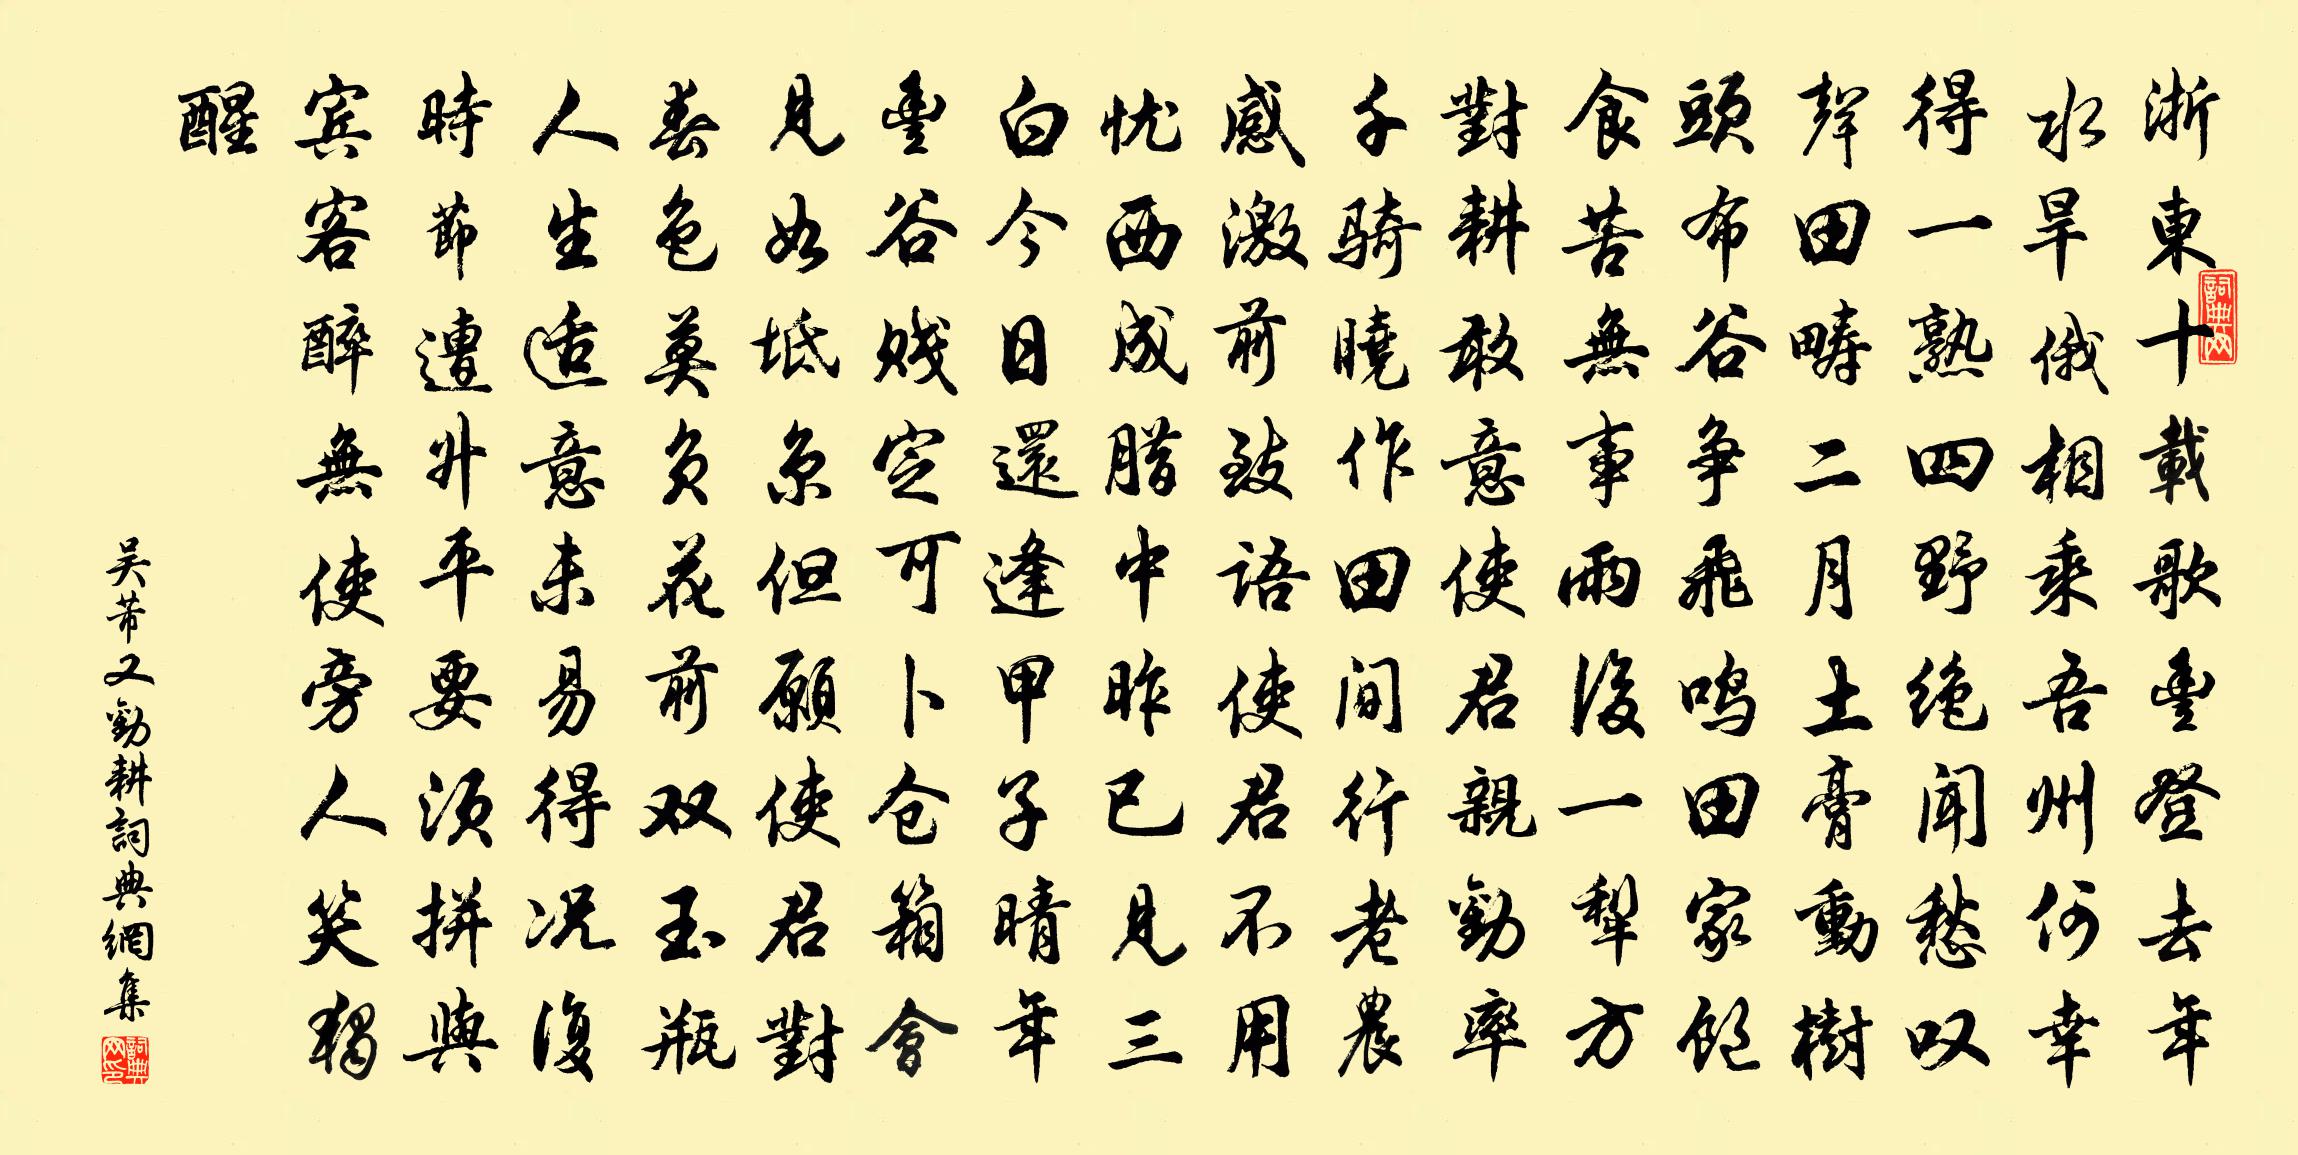 浙東十載歌豊登去年
水旱俄相乘吾州何幸
得一熟四野絶聞愁叹
聲田疇二月土膏動樹
頭布谷争飛鸣田家飽
食苦無事雨後一犁方
對耕敢意使君親勸率
千骑曉作田間行老農
感激前致語使君不用
忧西成腊中昨已見三
白今日還逢甲子晴年
豊谷贱定可卜仓箱會
見如坻京但願使君對
春色莫負花前双玉瓶
人生适意未易得况復
時節遭升平要須拼與
宾客醉無使旁人笑獨
醒
吴芾又勸耕詞典網集
詞典网
詞典网印